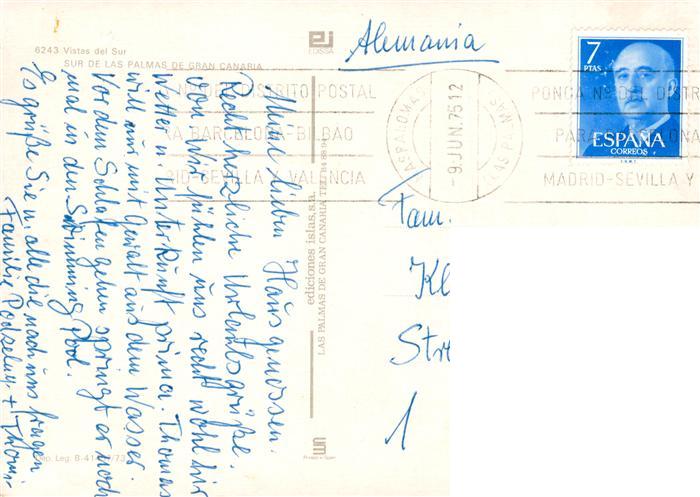 6243 Vistas del Sur
SUR DE LAS PALMAS DE GRAN CANARIA
Meine lieben Hausgenossen.
Recht herzliche Urlaubsgrüße.
von wir fühlen uns recht wohl hir
Wetter u. Unterkunft prima. Thomas
will nur mit Gewalt aus dem Wasser.
Vor dem Schlafen gehen springt er noch
mal in den Swimming Pool.
Es grüße Sie u. alle die nach uns fragen
Familie + Thomas
Dep. Leg. B-41
EDISSA
ediciones islas, s.a.
LAS PALMAS DE GRAN CANARIA TEL.
Printed in Spain
Alemania
Nº DEL DISTRITO POSTAL
BARCELONA-BILBAO
RID-SEVILLA Y VALENCIA
ASPALOMAS
-9. JUN. 75 12
LAS PALMAS
PONGA Nº DEL DISTR
PARA ONA
MADRID-SEVILLA Y
7
PTAS
ESPAÑA
CORREOS
Fam.
Kl
Str
1